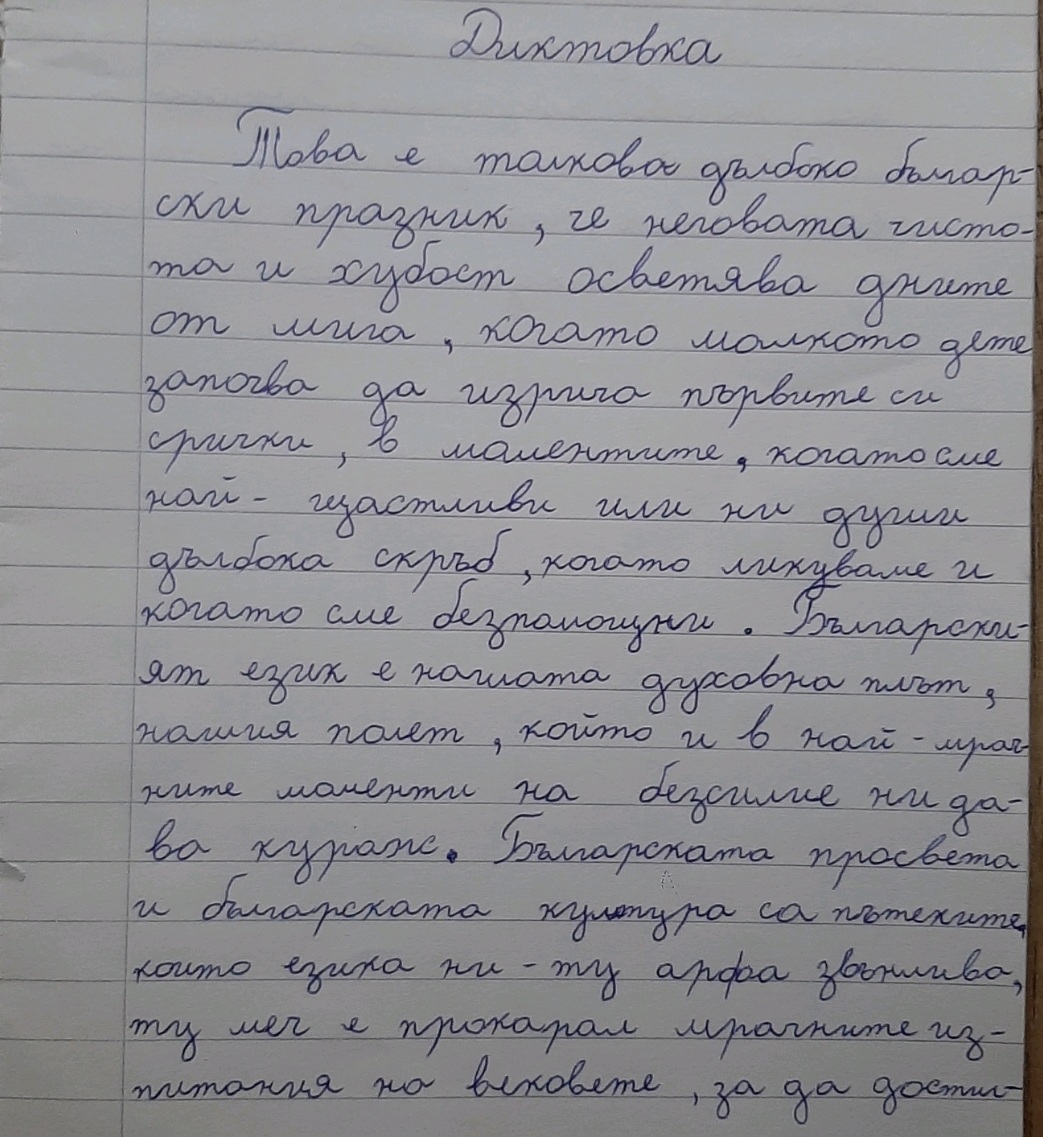 Диктовка
Това е толкова дълбоко българ-
ски празник, че неговата чисто-
та и хубост осветява дните
от мига, когато малкото дете
започва да изрича първите си
срички, в моментите, когато сме
най-щастливи или ни души
дълбока скръб, когато ликуваме и
когато сме безпомощни. Български-
ят език е нашата духовна плът,
нашия полет, който и в най-мрач-
ните моменти на безсилие ни да-
ва кураж. Българската просвета
и българската култура са пътеките,
които езика ни - ту арфа звънлива,
ту меч е прокарал мрачните из-
питания на вековете, за да достиг-